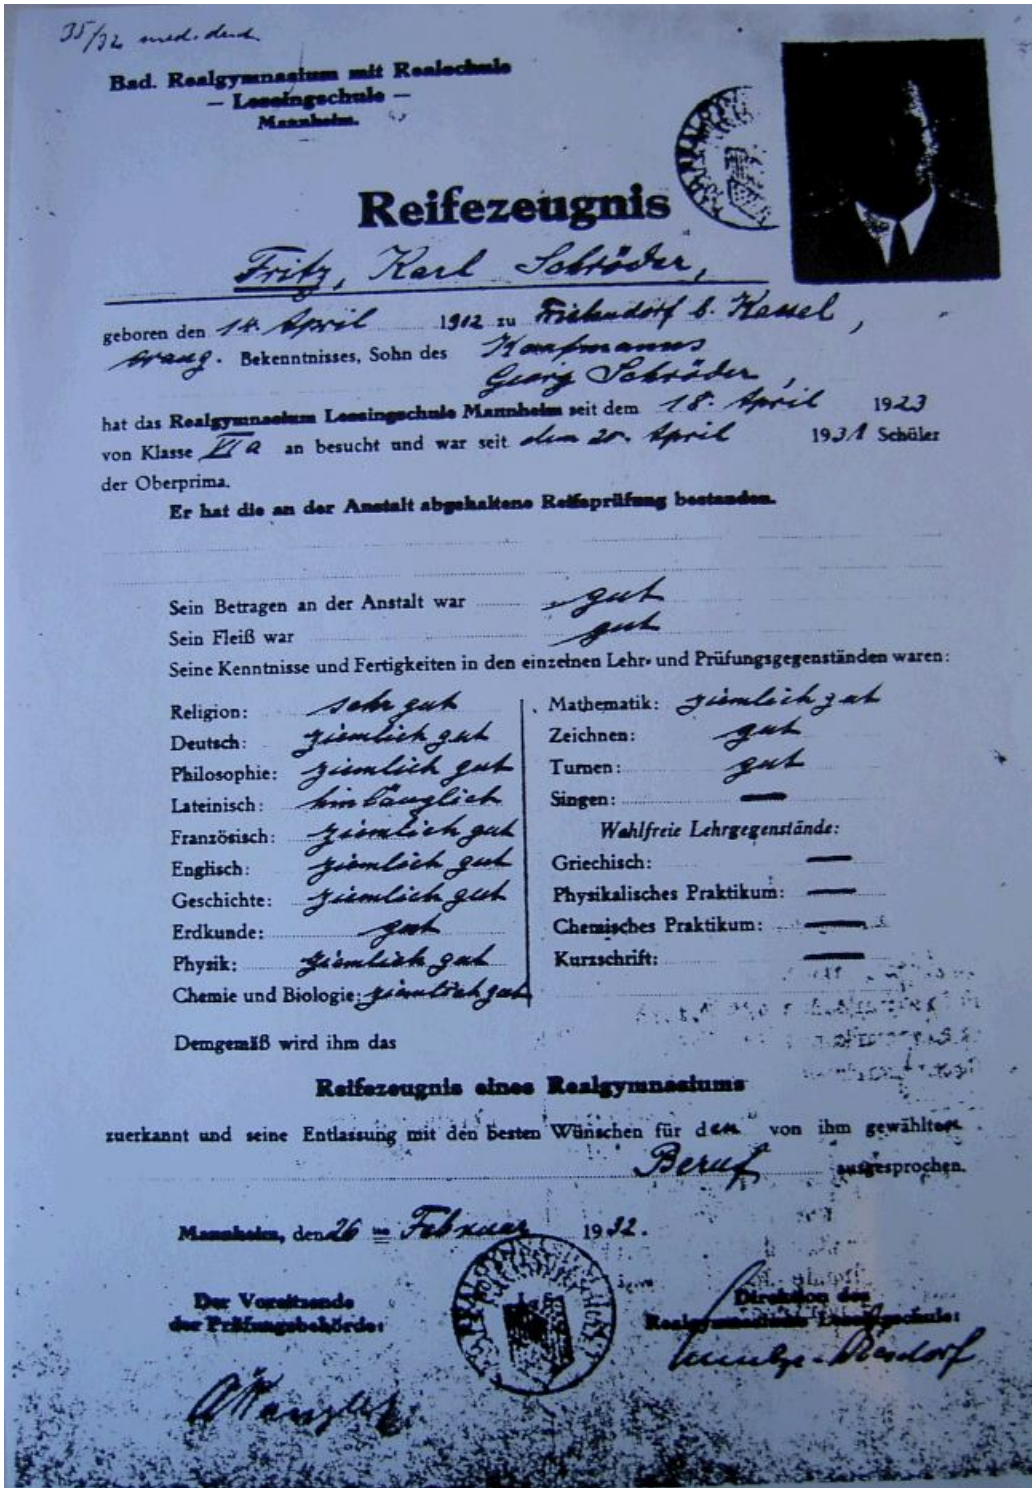 35/32 med. dent.
Bad. Realgymnasium mit Realschule
— Lessingschule —
Mannheim.
Reifezeugnis
Fritz, Karl Schröder,
geboren den 14. April 1912 zu b. Kassel,
evang. Bekenntnisses, Sohn des Kaufmanns
Georg Schröder,
hat das Realgymnasium Lessingschule Mannheim seit dem 18. April 1923
von Klasse VI a an besucht und war seit dem 20. April 1931 Schüler
der Oberprima.
Er hat die an der Anstalt abgehaltene Reifeprüfung bestanden.
Sein Betragen an der Anstalt war gut
Sein Fleiß war gut
Seine Kenntnisse und Fertigkeiten in den einzelnen Lehr- und Prüfungsgegenständen waren:
Religion: sehr gut
Deutsch: ziemlich gut
Philosophie: ziemlich gut
Lateinisch: hinlänglich
Französisch: ziemlich gut
Englisch: ziemlich gut
Geschichte: ziemlich gut
Erdkunde: gut
Physik: ziemlich gut
Chemie und Biologie: ziemlich gut
Mathematik: ziemlich gut
Zeichnen: gut
Turnen: gut
Singen: —
Wahlfreie Lehrgegenstände:
Griechisch: —
Physikalisches Praktikum: —
Chemisches Praktikum: —
Kurzschrift: —
Demgemäß wird ihm das
Reifezeugnis eines Realgymnasiums
zuerkannt und seine Entlassung mit den besten Wünschen für den von ihm gewählten
Beruf ausgesprochen.
Mannheim, den 26 ten Februar 1932.
Der Vorsitzende
der Prüfungsbehörde:
Direktion des
Realgymnasiums Lessingschule: